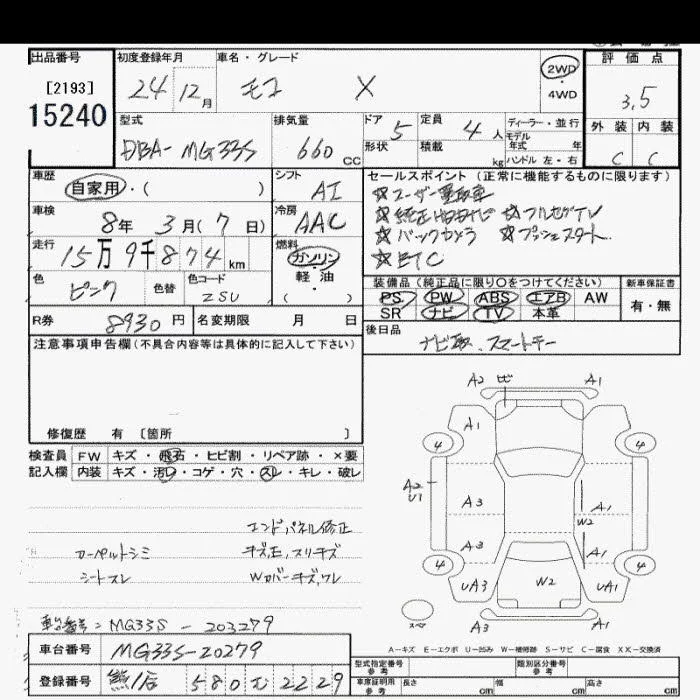 出品番号 初度登録年月 車名・グレード 評価点
[2193] 24 12月 モコ X 2WD・4WD 3.5
15240
型式 排気量 ドア 5 定員 4人 ディーラー・並行 外装 内装
DBA-MG33S 660 CC 形状 積載 kg モデル年式 年 ハンドル 左・右 C C
車歴 シフト セールスポイント(正常に機能するものに限ります)
自家用・( ) AT ☆ユーザー買取車
車検 冷房 ☆純正HDDナビ ☆フルセグTV
8年 3月(7日) AAC ☆バックカメラ ☆プッシュスタート
走行 燃料 ☆ETC
15万9千874km ガソリン・軽油・( )
色 色替 色コード 装備品(純正品に限り○をつけてください) 新車保証書
ピンク ZSU PS PW ABS エアB AW 有・無
SR ナビ TV 本革
R券 8930円 名変期限 月 日 後日品
注意事項申告欄(不具合内容等は具体的に記入して下さい) ナビ取、スマートキー
修復歴 有 〔箇所 〕
検査員 FW キズ・飛石・ヒビ割・リペア跡・×要
記入欄 内装 キズ・汚レ・コゲ・穴・スレ・キレ・破レ
エンドパネル修正
カーペットシミ キズ、E、スリキズ
シートスレ Wカバーキズ、ワレ
車台番号=MG33S-203279
車台番号 MG33S-20279
登録番号 580 む 2229
A2 ヒビ A1
A1
4 4
A2
U1
A3 A1
W2
A3 A1
4 4
UA3 W2 UA1
スペア A3 A1
A-キズ E-エクボ U-凹み W-補修跡 S-サビ C-腐食 XX-交換済
型式指定番号 参考 類別区分番号 参考
車庫証明用 参考 長さ cm 幅 cm 高さ cm